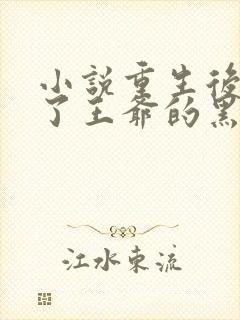 小說重生後
了王爺的黑
江水東流